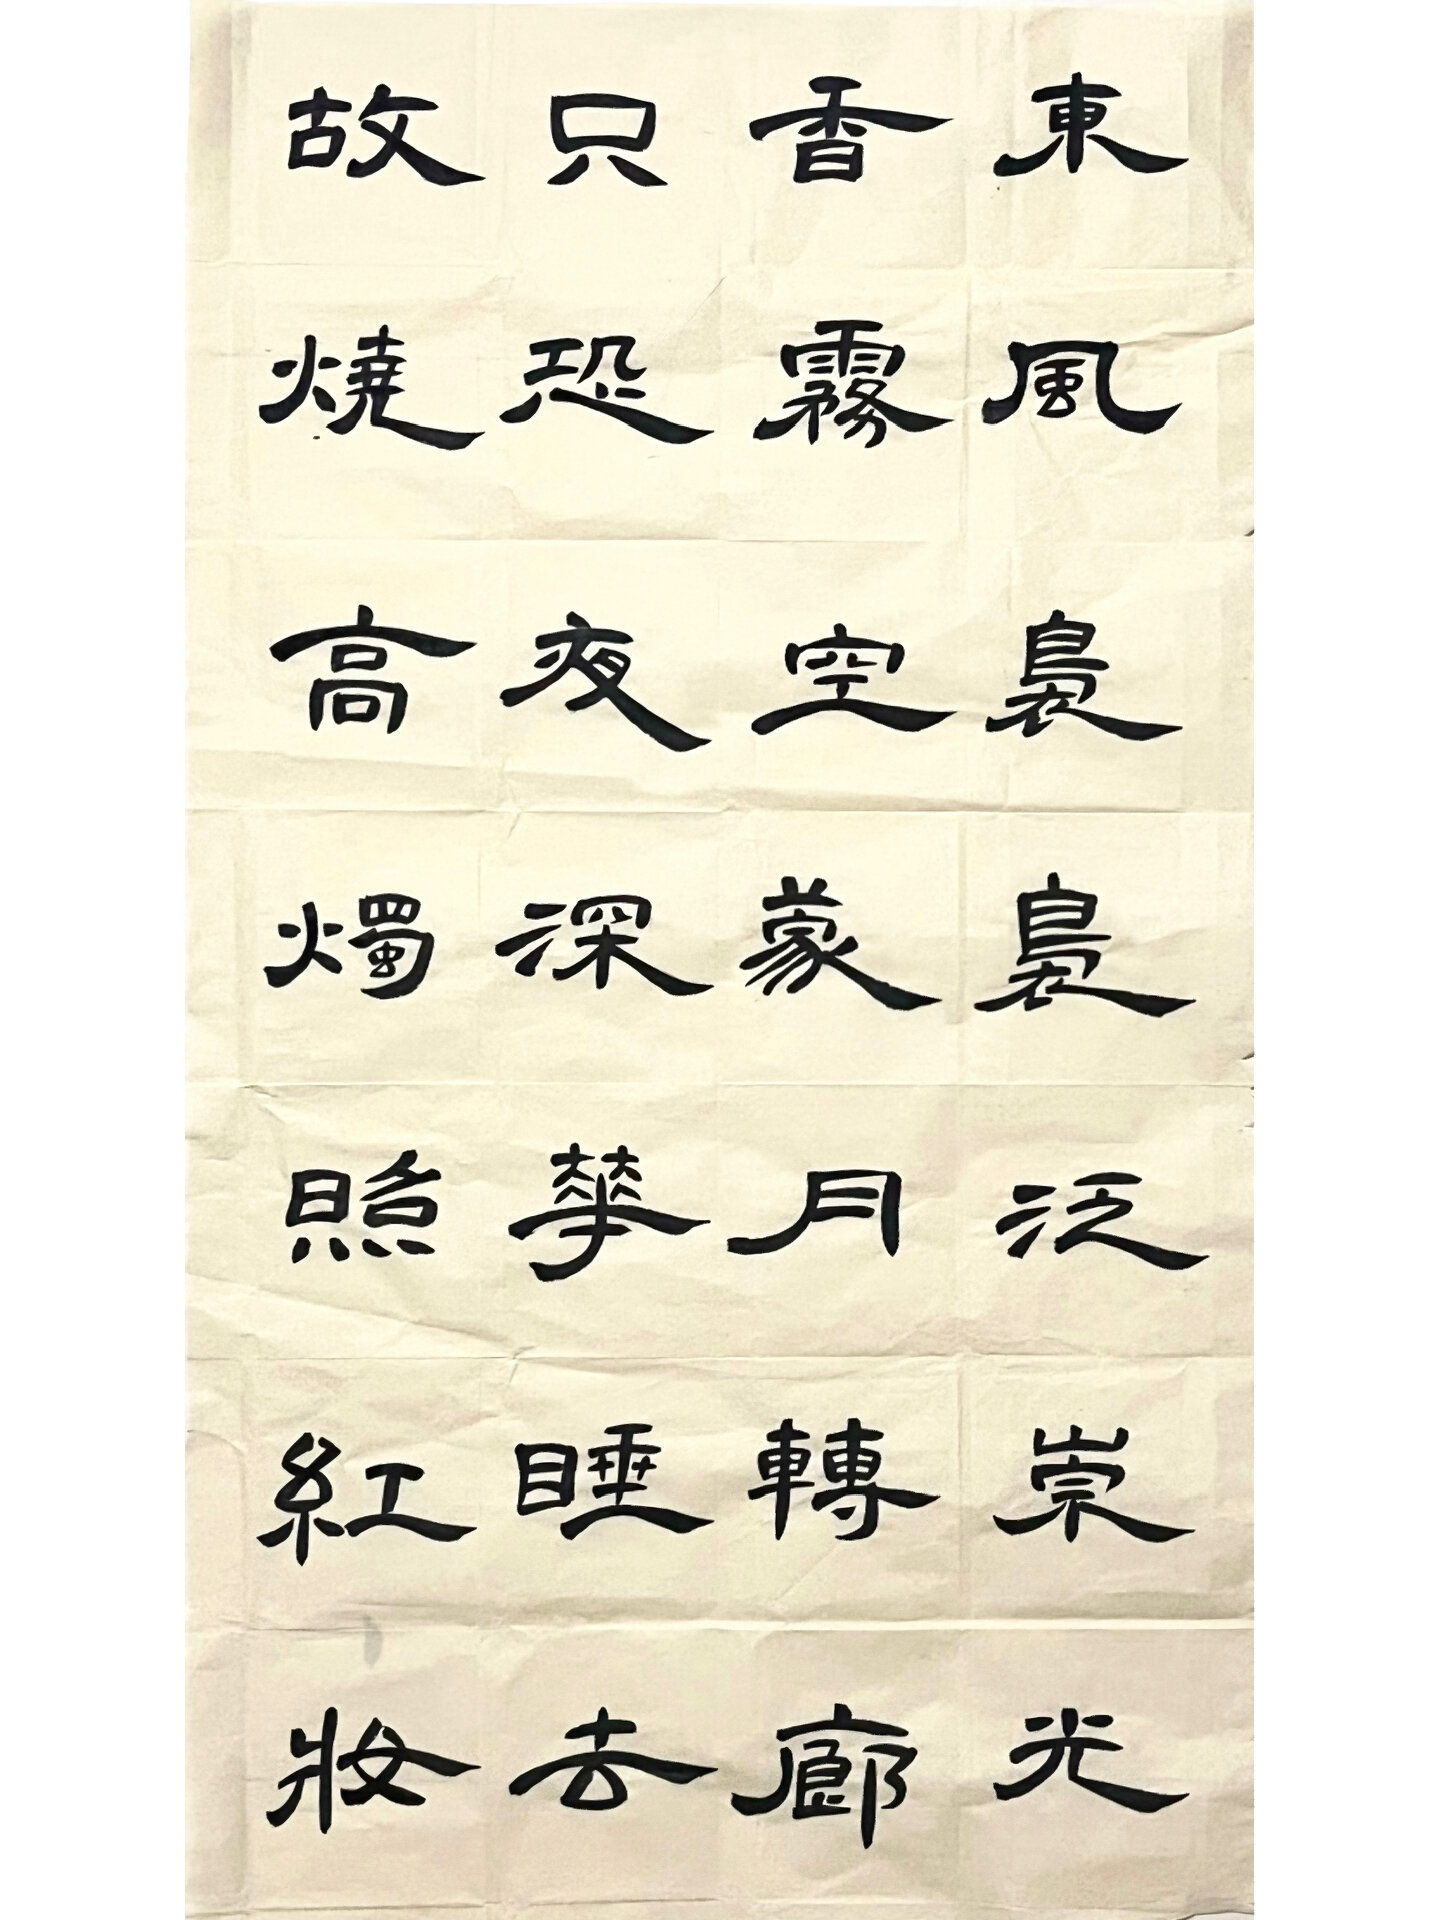 東風裊裊泛崇光
香霧空蒙月轉廊
只恐夜深華睡去
故燒高燭照紅妝